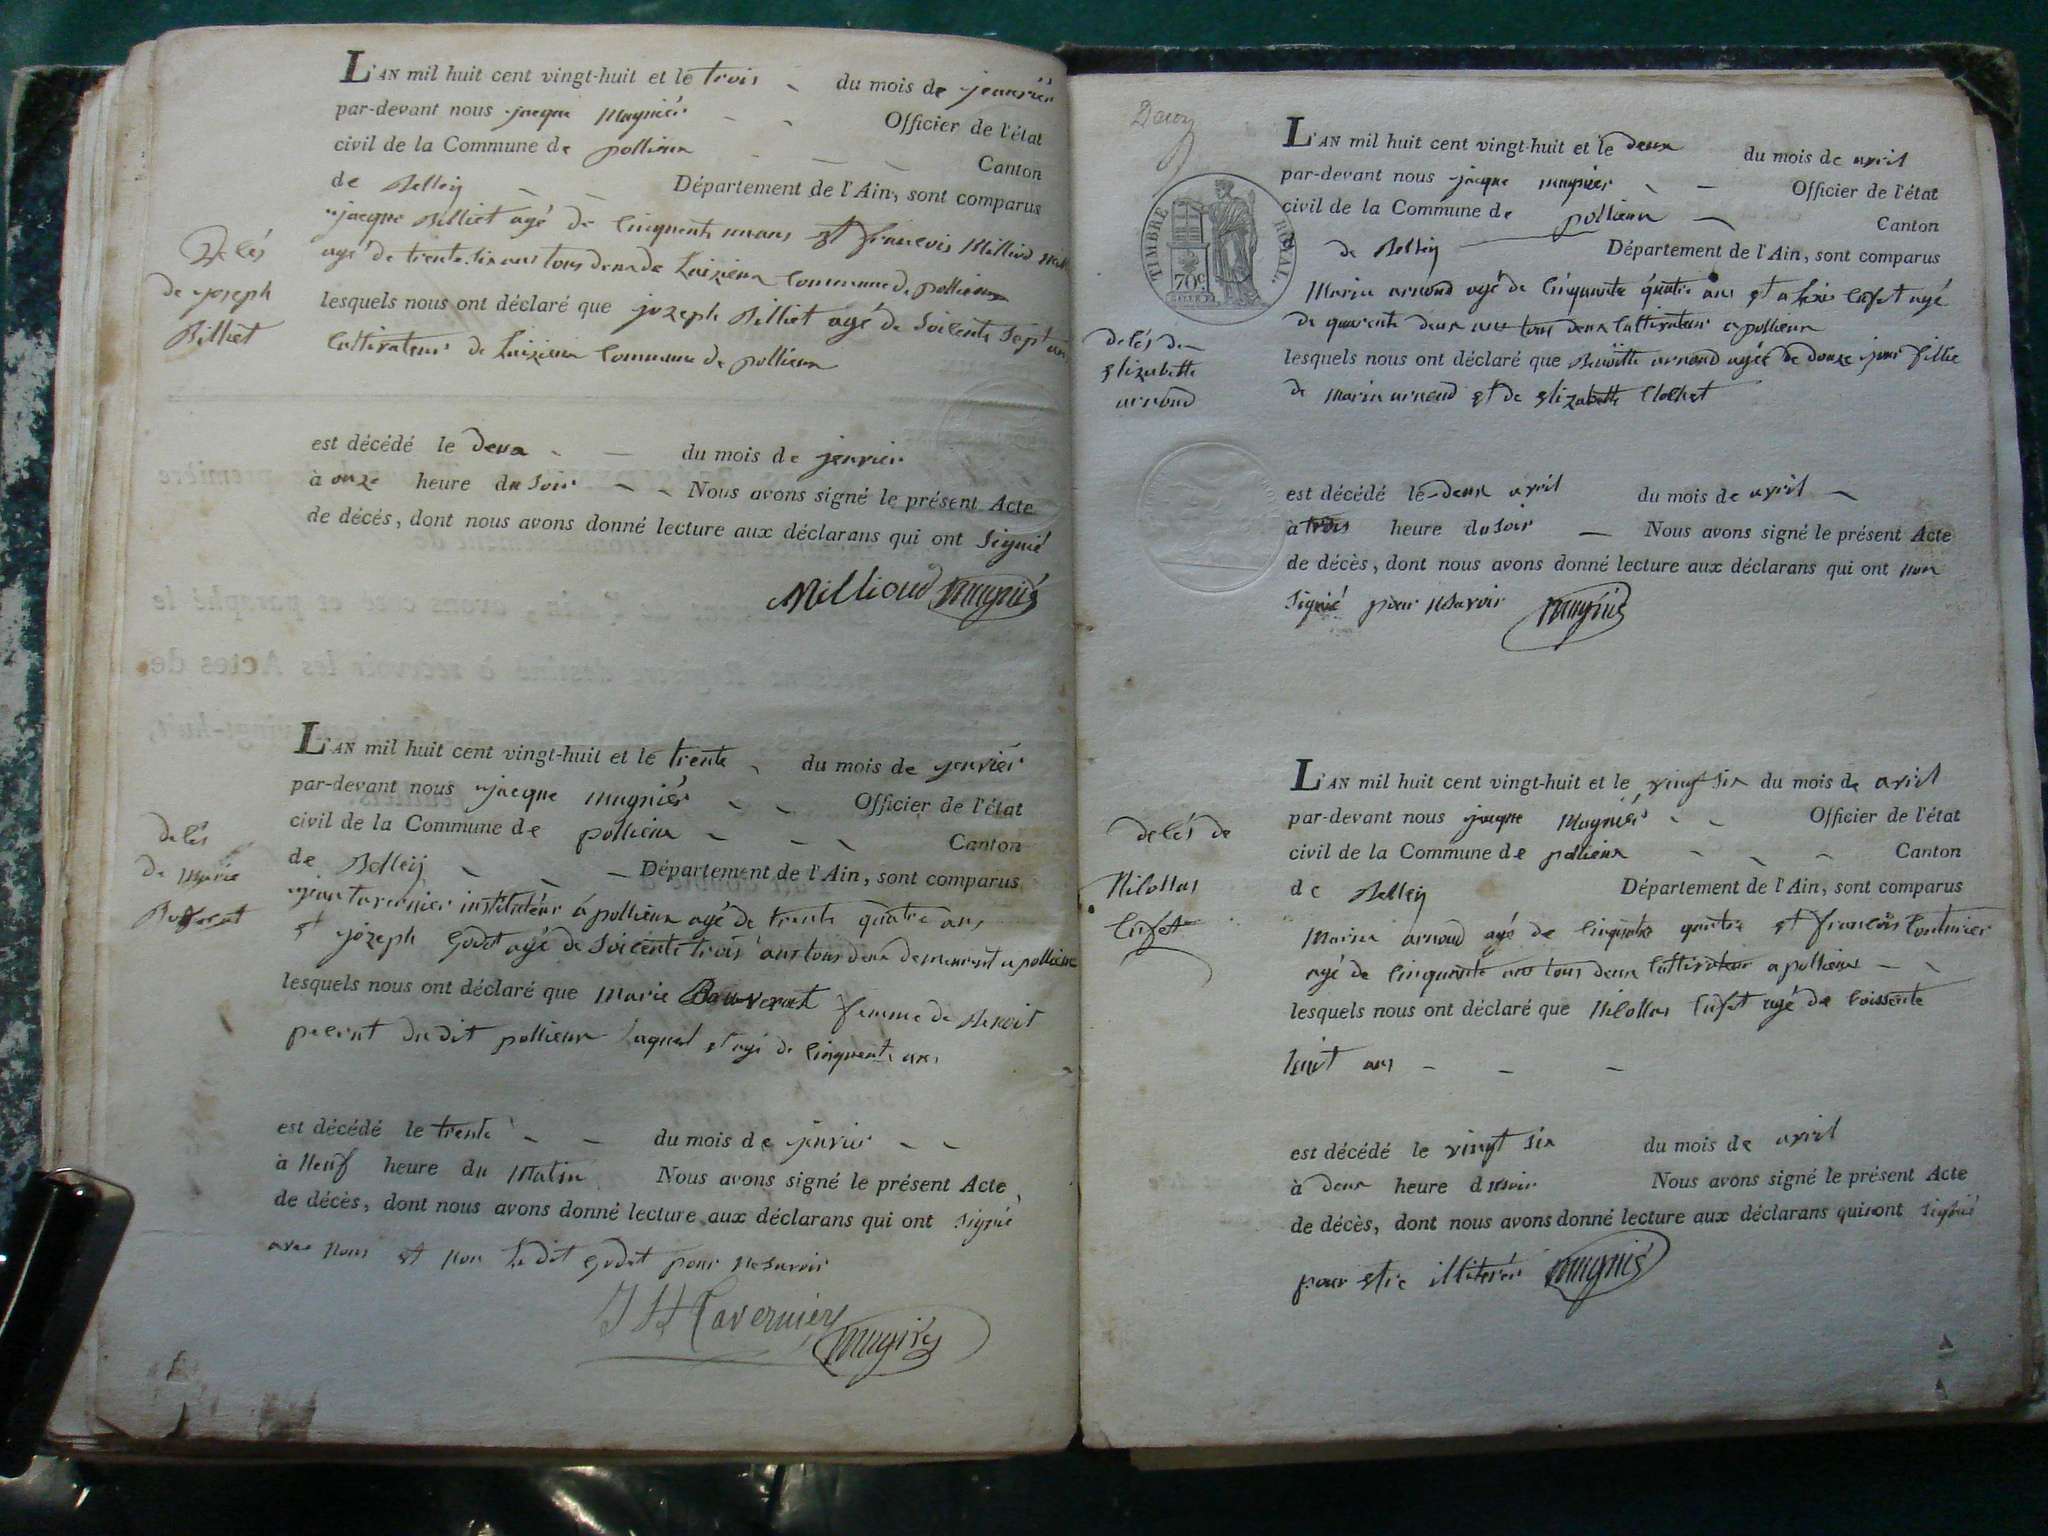 L'AN mil huit cent vingt-huit et le trois du mois de jenvier
par-devant nous jacque Magnier Officier de l'état
civil de la Commune de pollieux Canton
de Belley Département de l'Ain, sont comparus
jacque Billiet agé de cinquente un ans et francois Milliod
agé de trente six ans tous deux de Luizieux commune de pollieux
lesquels nous ont déclaré que jozeph Billiet agé de Soicente Sept ans
Cultivateur de Luizieux Commune de pollieux
Delés
de joseph
Billiet
est décédé le deux du mois de jenvier
à onze heure du Soir Nous avons signé le présent Acte
de décés, dont nous avons donné lecture aux déclarans qui ont Signié
Millioud Magnié
L'AN mil huit cent vingt-huit et le trente du mois de jenvier
par-devant nous jacque magnier Officier de l'état
civil de la Commune de pollieux Canton
de Belley Département de l'Ain, sont comparus
jean tavernier instituteur a pollieux agé de trente quatre ans
et jozeph Godet agé de Soicente trois ans tous deux demeurent a pollieux
lesquels nous ont déclaré que Marie femme de Benoit
du dit pollieux laquel et agé de cinquente ans
delés
de Marie
est décédé le trente du mois de jenvier
à Neuf heure du Matin Nous avons signé le présent Acte
de décès, dont nous avons donné lecture aux déclarans qui ont Signié
avec nous et non le dit Godet pour ne savoir
Tavernier magnié
TIMBRE ROYAL
70c
L'AN mil huit cent vingt-huit et le deux du mois de avril
par-devant nous jacque magnier Officier de l'état
civil de la Commune de pollieux Canton
de Belley Département de l'Ain, sont comparus
Marin arnond agé de Cinquante quatre ans et alexis Cufet agé
de quarente deux ans tous deux Cultivateur a pollieux
lesquels nous ont déclaré que arnond agée de douze jour fillie
de Marin arnond et de Elizabette Clochet
delés de
Elizabette
arnond
est décédé le deux avril du mois de avril
à trois heure du soir Nous avons signé le présent Acte
de décès, dont nous avons donné lecture aux déclarans qui ont non
Signié pour ne savoir magnié
L'AN mil huit cent vingt-huit et le vingt six du mois de avril
par-devant nous jacque Magnier Officier de l'état
civil de la Commune de pollieux Canton
de Belley Département de l'Ain, sont comparus
Marin arnond agé de cinquante quatre et francois
agé de cinquante ans tous deux Cultivateur a pollieux
lesquels nous ont déclaré que Nicollas Cufet agé de Soissente
huit ans
delés de
Nicollas
Cufet
est décédé le vingt six du mois de avril
à deux heure du soir Nous avons signé le présent Acte
de décès, dont nous avons donné lecture aux déclarans qui ont Signié
pour etre illiterés magnié